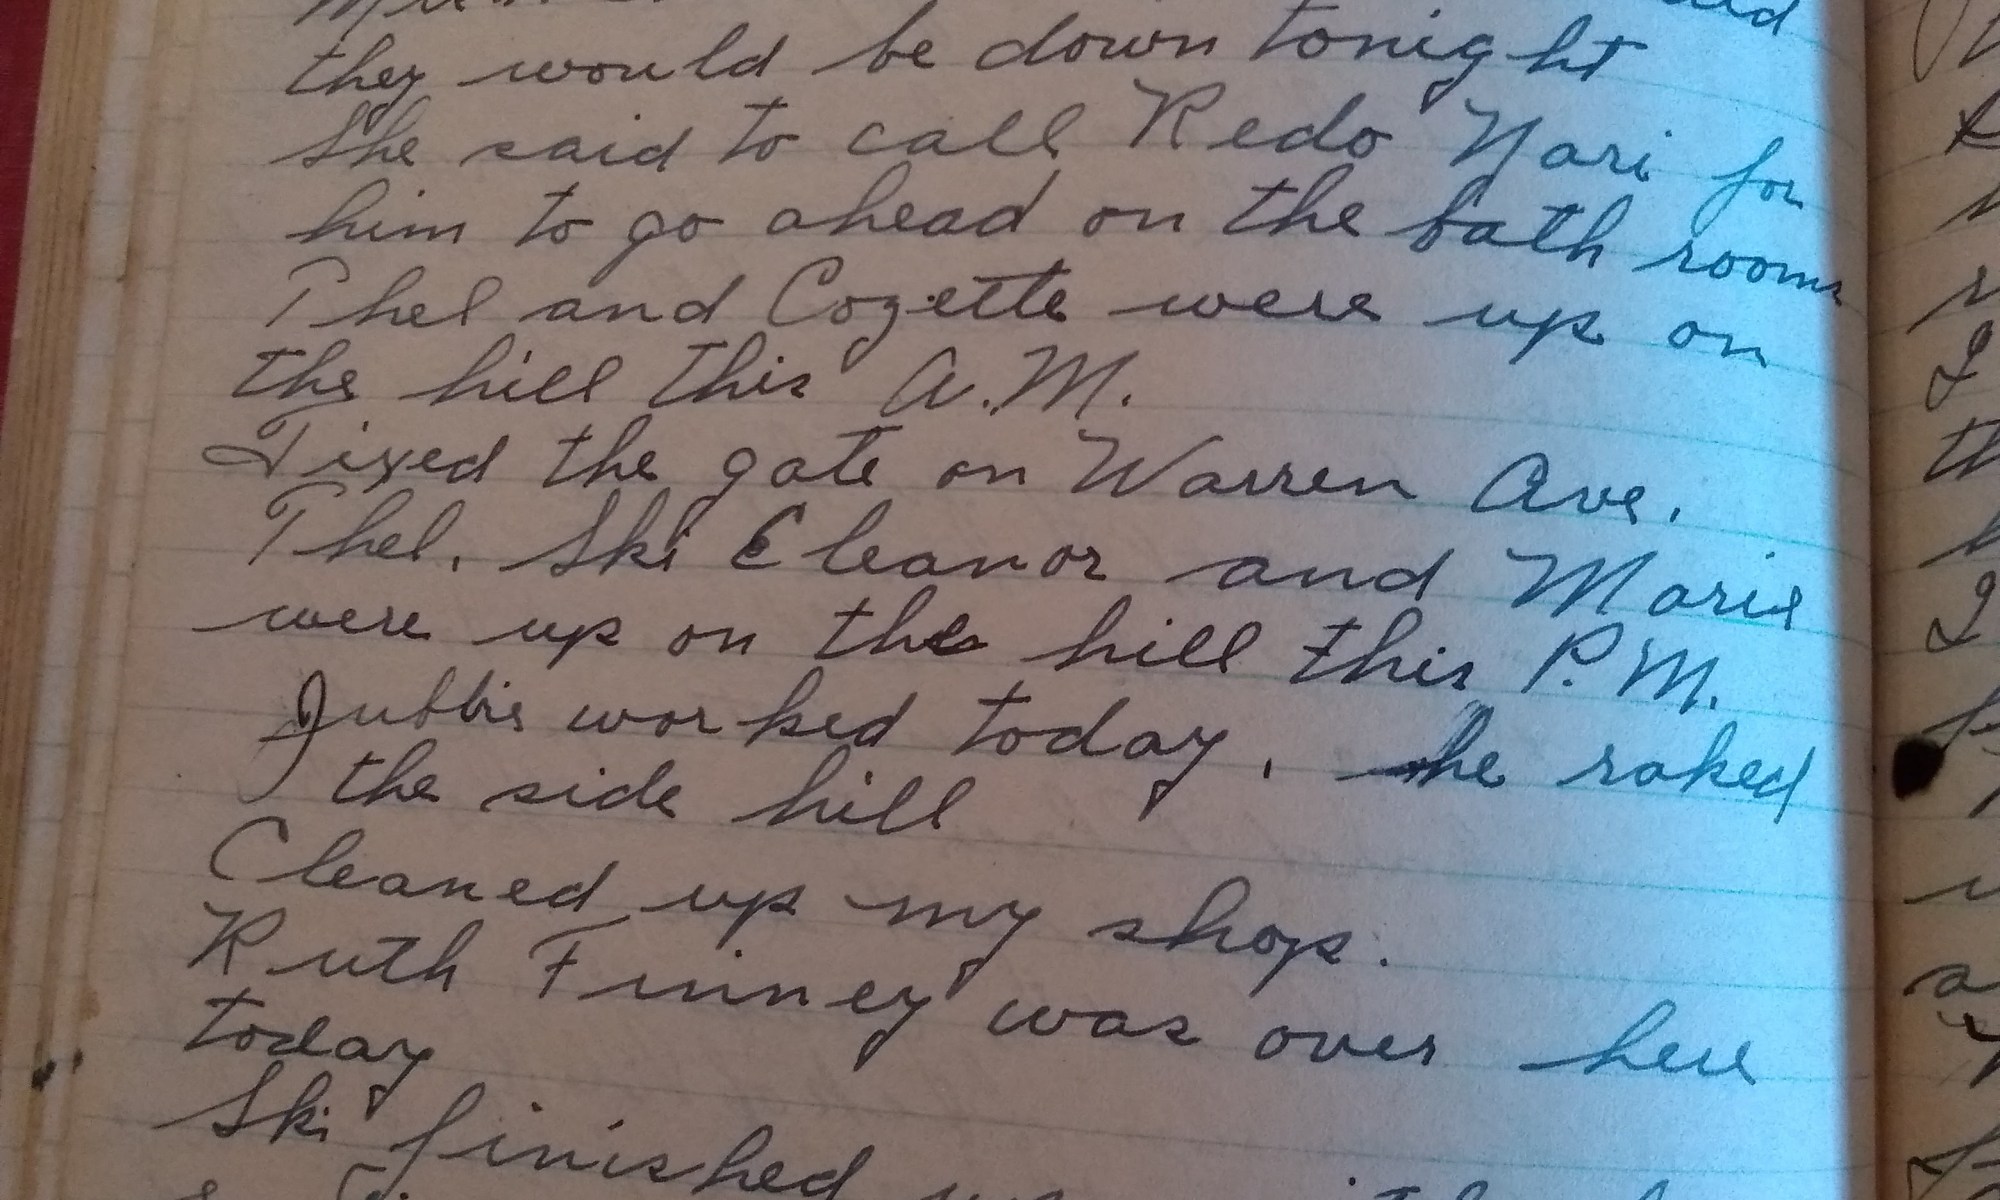 they would be down tonight
She said to call Redo Nari for
him to go ahead on the bath rooms
Thel and Cozette were up on
the hill this A.M.
Fixed the gate on Warren Ave.
Thel. Ski Eleanor and Marie
were up on the hill this P.M.
Jubbie worked today, he raked
the side hill
Cleaned up my shop.
Ruth Finney was over here
today
Ski finished